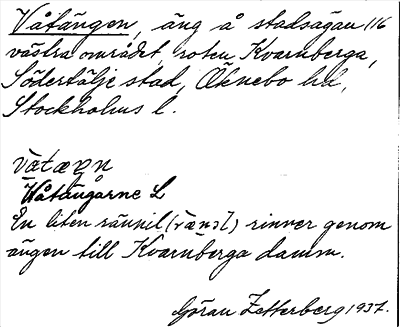 Våtängen, äng å stadsägan 116
västra området, roten Kvarnberga,
Södertälje stad, Öknebo hd,
Stockholms l.
Våtängarne L
En liten rännil (rænəl) rinner genom
ängen till Kvarnberga damm.
Göran Zetterberg 1937.